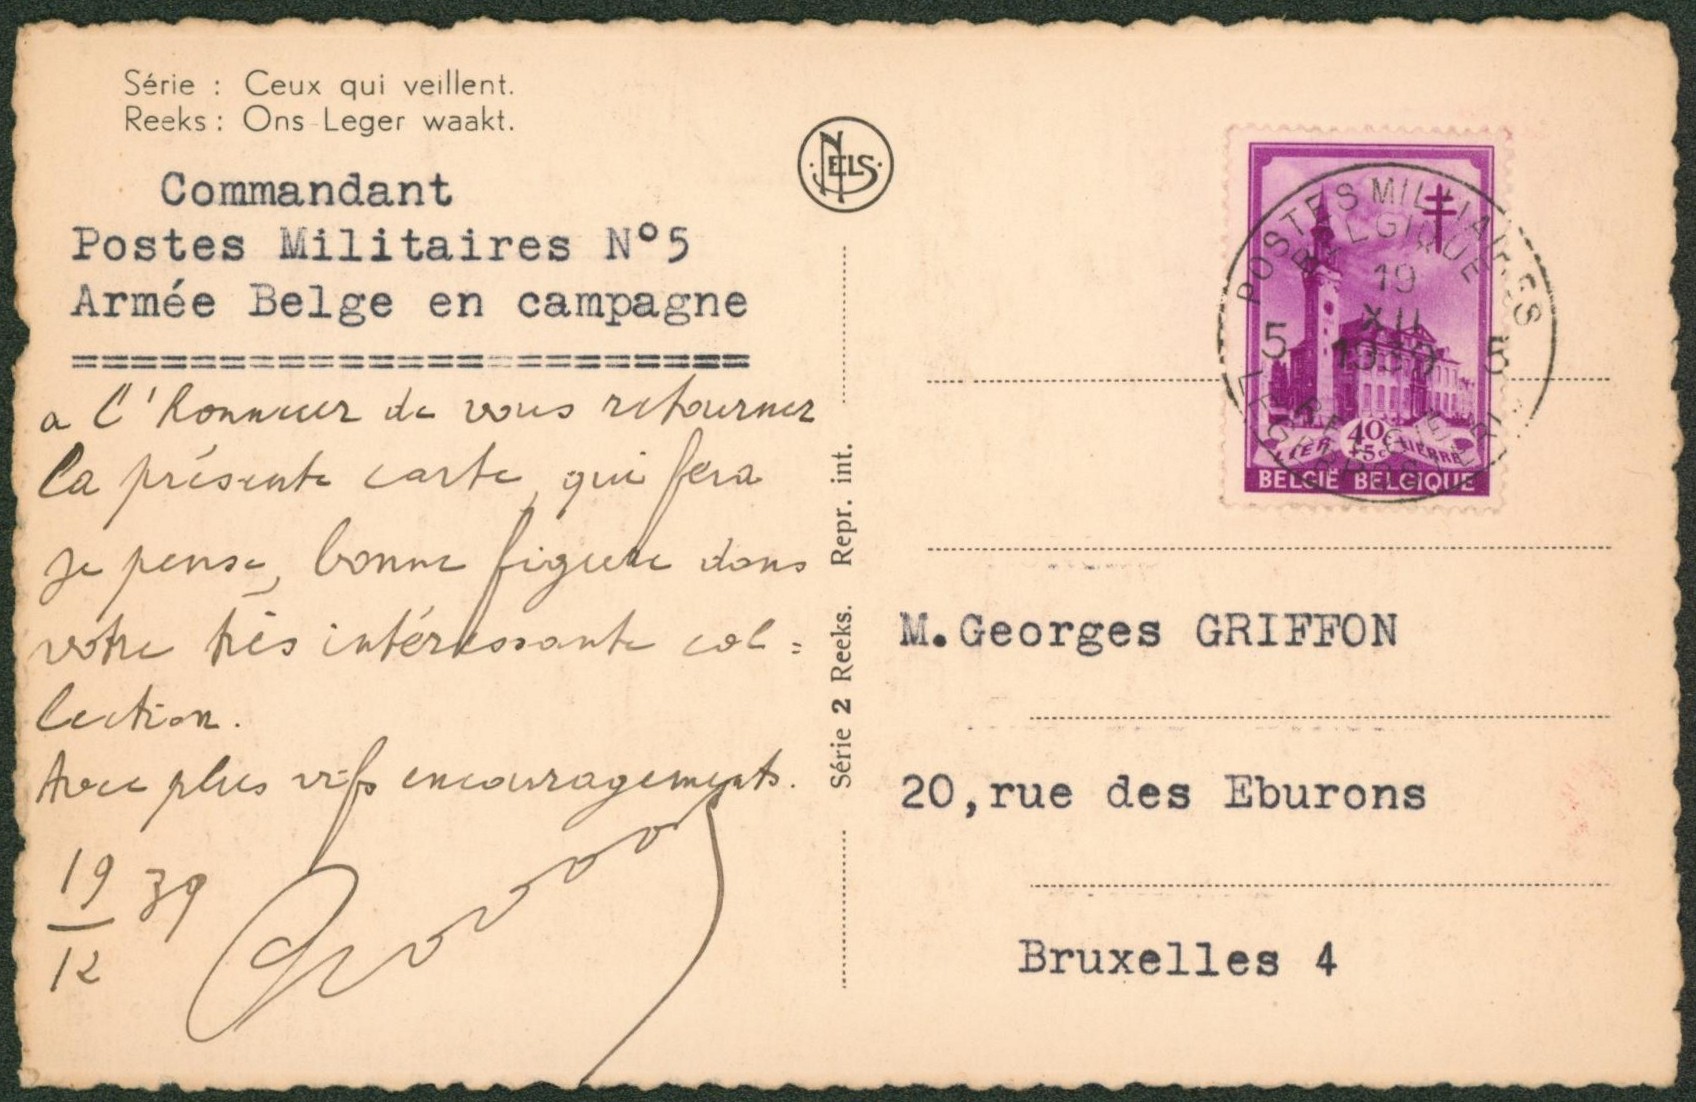 Série : Ceux qui veillent.
Reeks : Ons Leger waakt.
Commandant
Postes Militaires N°5
Armée Belge en campagne
=======================
a l'honneur de vous retourner
la présente carte, qui fera
je pense, bonne figure dans
votre très intéressante col=
lection.
Avec plus vifs encouragements.
19/12 39
NELS
Série 2 Reeks. Repr. int.
POSTES MILITAIRES
BELGIQUE
19
XII
1939
5 5
BELGIE
LEGERPOSTERIJ
LIER 40 +5c LIERRE
BELGIË BELGIQUE
M. Georges GRIFFON
20, rue des Eburons
Bruxelles 4